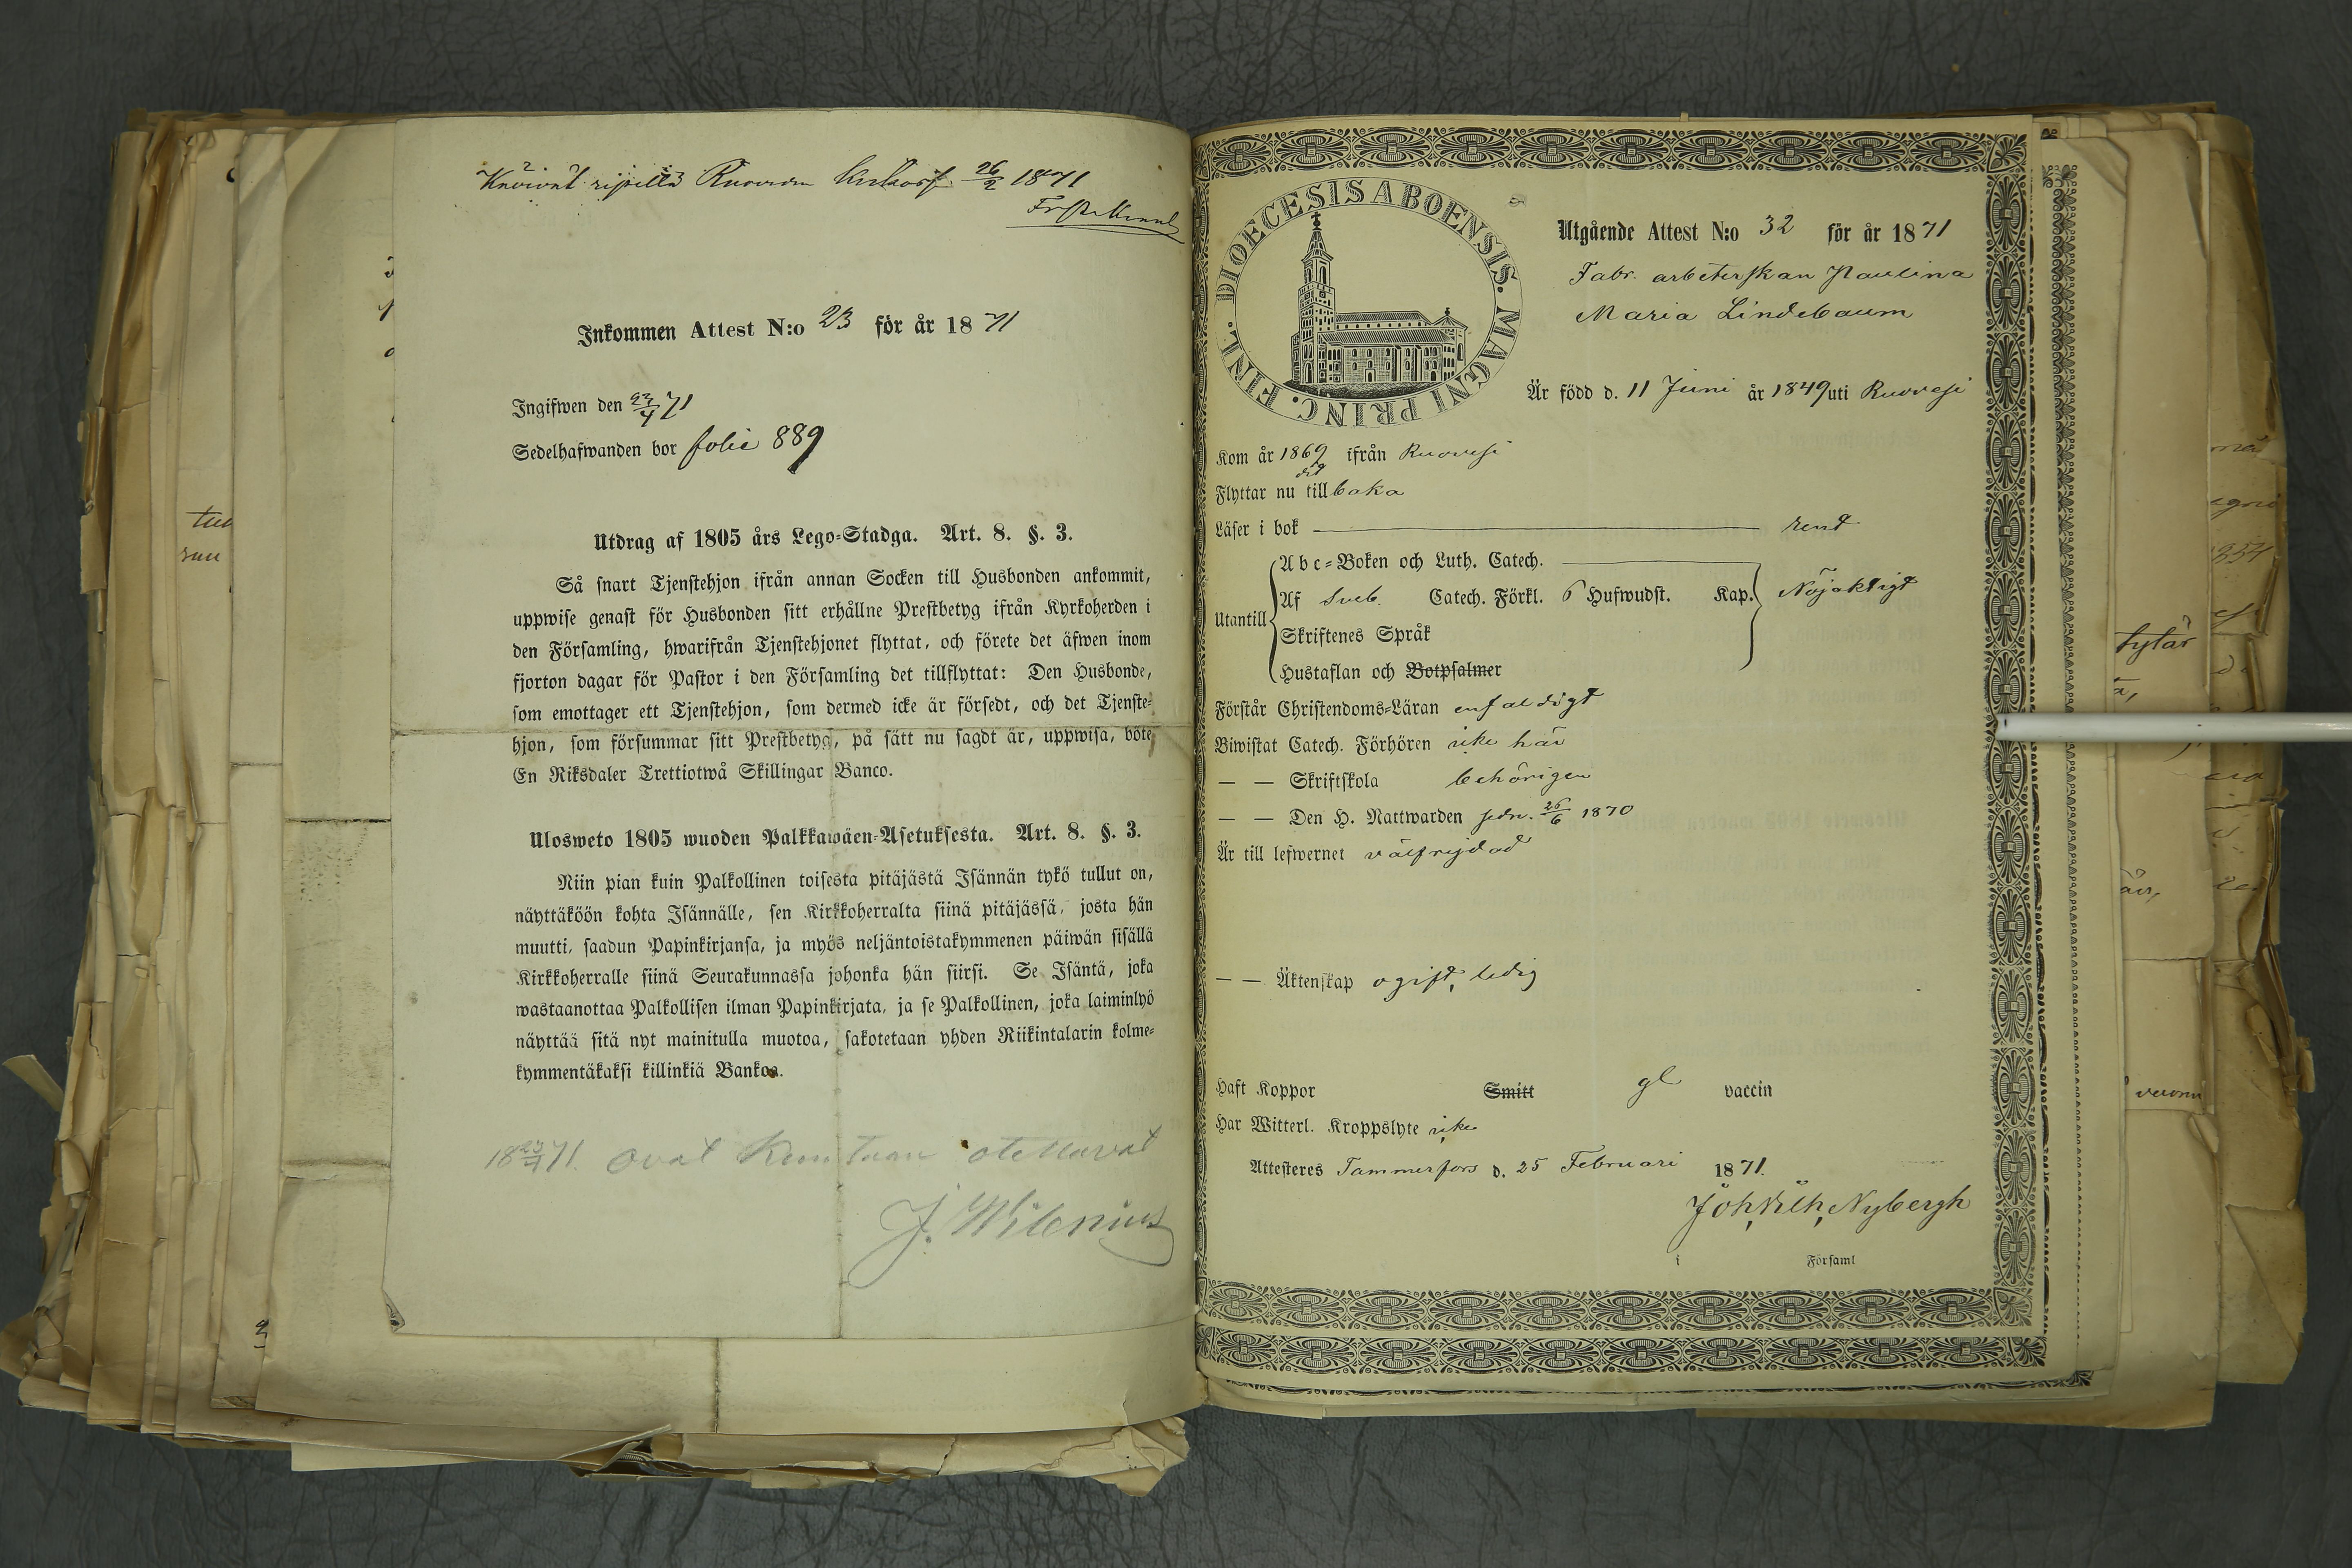 Käivät ripillä Ruoveden 26/2 1871
Inkommen Attest N:o 23 för år 1871
Ingifwen den 23/4 71
Sedelhafwanden bor folie 889
Utdrag af 1805 års Lego-Stadga. Art. 8. §. 3.
Så snart Tjenstehjon ifrån annan Socken till Husbonden ankommit,
uppwise genast för Husbonden sitt erhållne Prestbetyg ifrån Kyrkoherden i
den Församling, hwarifrån Tjenstehjonet flyttat, och förete det äfwen inom
fjorton dagar för Pastor i den Församling det tillflyttat: Den Husbonde,
som emottager ett Tjenstehjon, som dermed icke är försedt, och det Tjenste-
hjon, som försummar sitt Prestbetyg, på sätt nu sagdt är, uppwisa, böte
En Riksdaler Trettiotwå Skillingar Banco.
Ulosweto 1805 wuoden Palkkawäen-Asetuksesta. Art. 8. §. 3.
Niin pian kuin Palkollinen toisesta pitäjästä Isännän tykö tullut on,
näyttäköön kohta Isännälle, sen Kirkkoherralta siinä pitäjässä, josta hän
muutti, saadun Papinkirjansa, ja myös neljäntoistakymmenen päiwän sisällä
Kirkkoherralle siinä Seurakunnassa johonka hän siirsi. Se Isäntä, joka
wastaanottaa Palkollisen ilman Papinkirjata, ja se Palkollinen, joka laiminlyö
näyttää sitä nyt mainitulla muotoa, sakotetaan yhden Riikintalarin kolme-
kymmentäkaksi killinkiä Bankoa.
18 23/4 71. ovat Kuntaan otettavat
J. Wilenius
DIOECESIS ABOENSIS. MAGNI PRINC. FINL.
Utgående Attest N:o 32 för år 1871
Fabr. arbeterskan Paulina
Maria Lindebaum
Är född d. 11 Juni år 1849 uti Ruovesi
Kom år 1869 ifrån Ruovesi
dit
Flyttar nu tillbaka
Läser i bok rent
Abc-Boken och Luth. Catech.
Utantill Af Sveb. Catech. Förkl. 6 Hufwudst. Kap. Nöjaktigt
Skriftenes Språk
Hustaflan och Botpsalmer
Förstår Christendoms-Läran enfaldigt
Biwistat Catech. Förhören icke här
— — Skriftskola behörigen
— — Den H. Nattwarden sedn. 26/6 1870
Är till lefwernet välfrejdad
— — Äktenskap ogift, ledig
Haft Koppor Smitt gl vaccin
Har Witterl. Kroppslyte icke
Attesteres Tammerfors d. 25 Februari 1871.
Joh. Vilh. Nybergh
i Församl